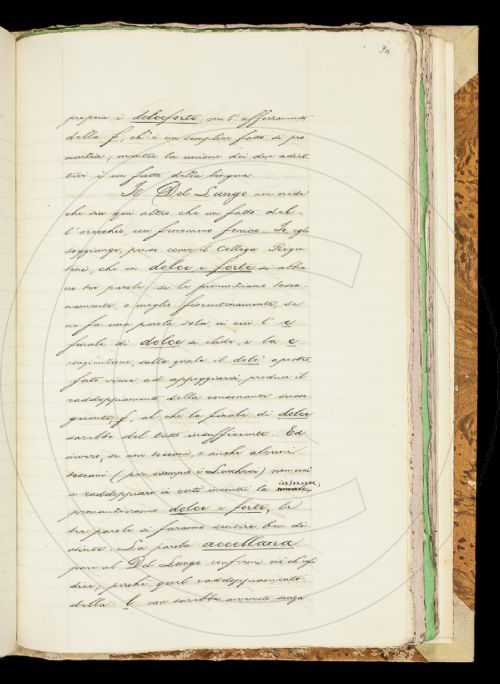 propria è dolceforte, con l'afforzamento
della f, ch'è un semplice fatto di pro
nunzia; mentre la unione dei due adiet
tivi è un fatto della lingua.
Il Del Lungo non crede
che sia qui altro che un fatto dal-
l'orecchio, un fenomeno fonico. Se egli
soggiunge, prova come il Collega Rigu
tini, che in dolce e forte si abbia
no tre parole; se le pronunziamo tosca
namente, o meglio, fiorentinamente, se
ne fa una parola sola in cui l'e
finale di dolce si elide, e la e
congiunzione, sulla quale il dolc' apostro
fato viene ad appoggiarsi, produce il
raddoppiamento della consonante susse
guente f, al che la finale di dolce
sarebbe del tutto insufficiente. Ed
invero, se un toscani, e anche alcuni
toscani (per esempio i Lucchesi) non usi
a raddoppiare in certi incontri la consonante,
pronunzieranno dolce e forte, le
tre parole si faranno sentire ben di
stinte. La parola accellana
pare al Del Lungo confermi ciò ch'egli
dice; perchè quel raddoppiamento
della l non sarebbe avvenuto senza
34